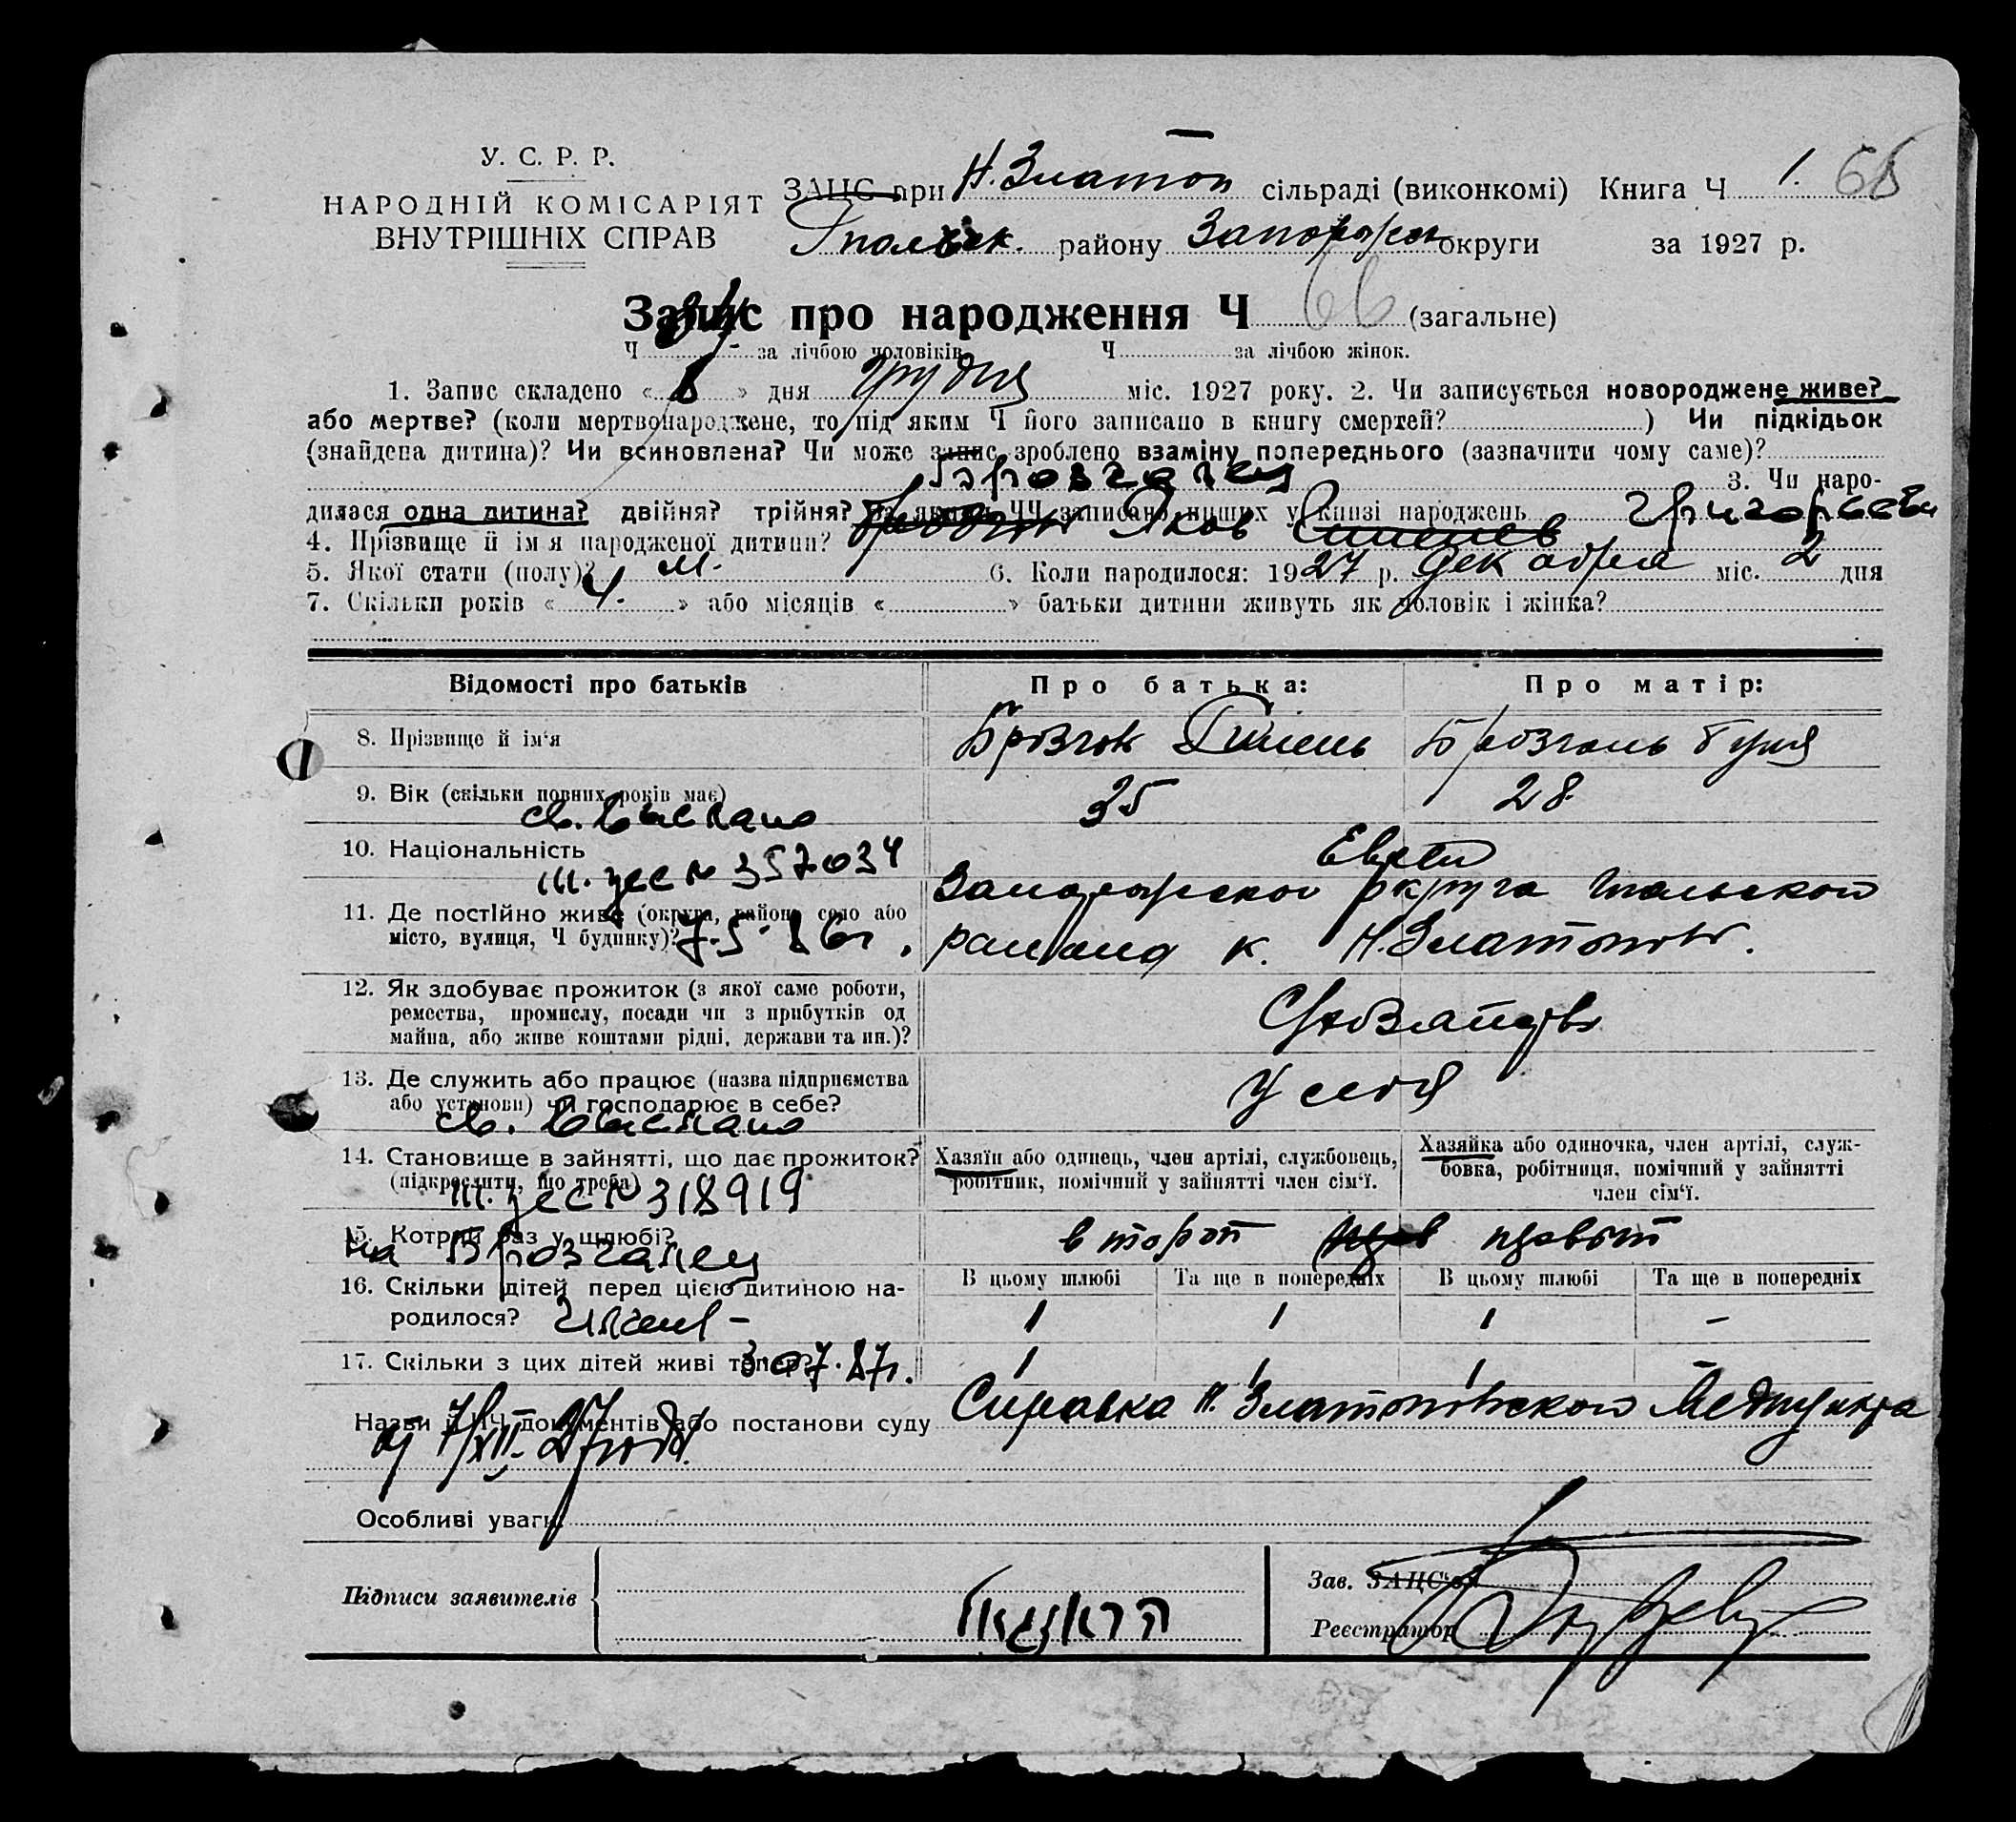 У. С. Р. Р.
НАРОДНІЙ КОМІСАРІЯТ
ВНУТРІШНІХ СПРАВ
ЗАЦС при Н. Златоп сільраді (виконкомі) Книга Ч 1. 66
району Запорож округи за 1927 р.
Запис про народження Ч 66 (загальне)
Ч за лічбою чоловіків Ч за лічбою жінок.
1. Запис складено « 8 » дня грудня міс. 1927 року. 2. Чи записується новороджене живе?
або мертве? (коли мертвонароджене, то під яким Ч його записано в книгу смертей? ) Чи підкідьок
(знайдена дитина)? Чи всиновлена? Чи може запис зроблено взаміну попереднього (зазначити чому саме)?
Брозголец 3. Чи наро-
дилася одна дитина? двійня? трійня? За якими ЧЧ записано инших у книзі народжень
4. Прізвище й ім'я народженої дитини? Яков Григорьевич
5. Якої стати (полу)? М. 6. Коли народилося: 1927 р. Декабря міс. 2 дня
7. Скільки років « 4. » або місяців « » батьки дитини живуть як чоловік і жінка?
Відомості про батьків Про батька: Про матір:
8. Прізвище й ім'я
9. Вік (скільки повних років має) 35 28.
св. выслано
10. Національність Евреи
III. № 357034
11. Де постійно живе (округа, район, село або
місто, вулиця, Ч будинку)? 7.5.86г.
Запорожской округа
района к. Н. Златополь.
12. Як здобуває прожиток (з якої саме роботи,
ремества, промислу, посади чи з прибутків од
майна, або живе коштами рідні, держави та ин.)?
13. Де служить або працює (назва підприємства
або установи) чи господарює в себе? У себя
св. выслано
14. Становище в занятті, що дає прожиток?
(підкреслити, що треба)
Хазяїн або одинець, член артілі, службовець,
робітник, помічний у занятті член сім'ї.
Хазяйка або одиночка, член артілі, служ-
бовка, робітниця, помічний у занятті
член сім'ї.
III. № 318919
15. Котрий раз у шлюбі? второй первый
на Брозголец
16. Скільки дітей перед цією дитиною на-
родилося?
В цьому шлюбі Та ще в попередніх В цьому шлюбі Та ще в попередніх
1 1 1 –
17. Скільки з цих дітей живі тепер? 1 1 1 –
3.07.87г.
Назви й ЧЧ документів або постанови суду Справка Н. Златопольского Медпункта
от 7/XII-27 года.
Особливі уваги:
Підписи заявителів
Зав. ЗАЦС'ом
Реєстратор